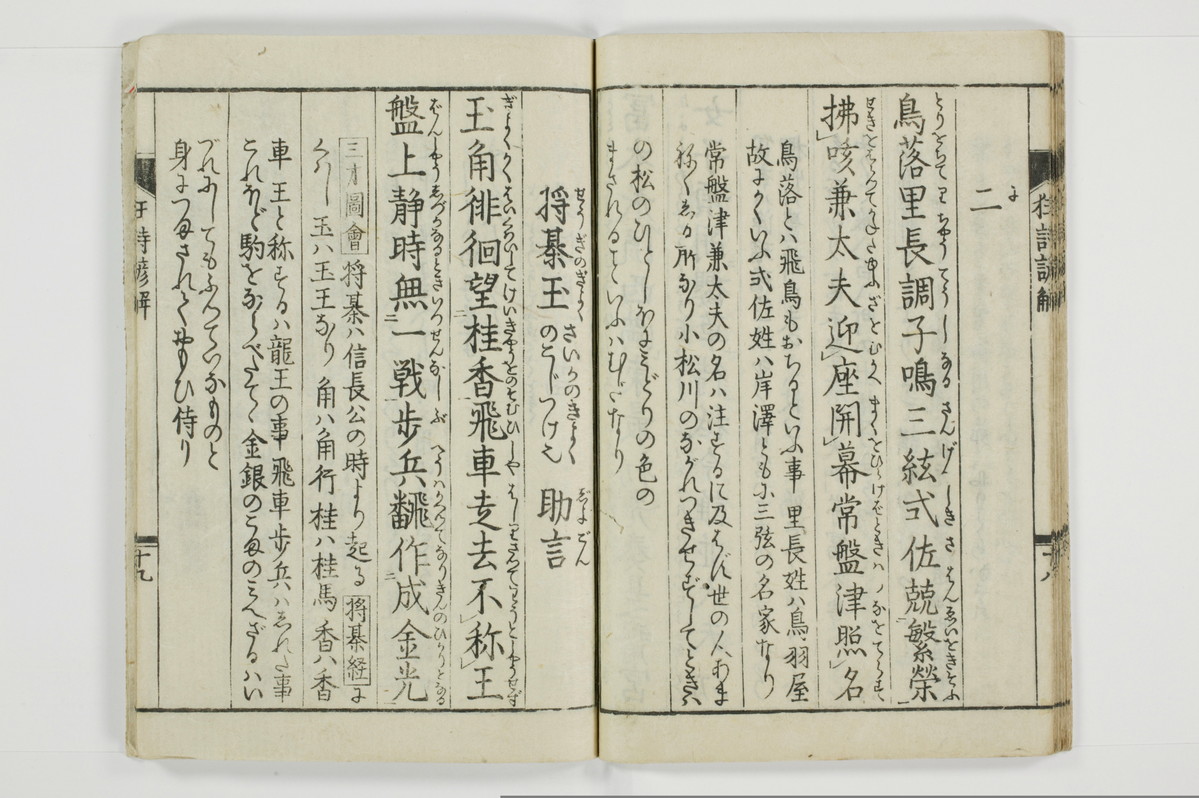 二
鳥落里長調子鳴三絃式佐兢繁榮
拂咳兼太夫迎座開幕常盤津照名
鳥落とハ飛鳥もおちるといふ事 里長姓ハ鳥羽屋
故にかくいふ式佐姓ハ岸澤ともに三弦の名家なり
常盤津兼太夫の名ハ注するに及ばず世の人あま
ねくしる所なり小松川のながれつきせずしてときハ
の松のひとしほにみどりの色の
まされるといふハむだなり
将棊玉 のこじつけ也 助言
玉角徘徊望桂香飛車走去不称王
盤上静時無一戦歩兵飜作成金光
三才圖會 将棊ハ信長公の時より起る 将棊経に
くハし 玉ハ玉王なり 角ハ角行 桂ハ桂馬 香ハ香
車 王と称するハ龍王の事 飛車歩兵ハしれた事
これほど駒をならべたてゝ金銀のこまのミへざるハい
づれにしてもふんていなものと
身につまされておもひ侍り
狂詩諺解
十九